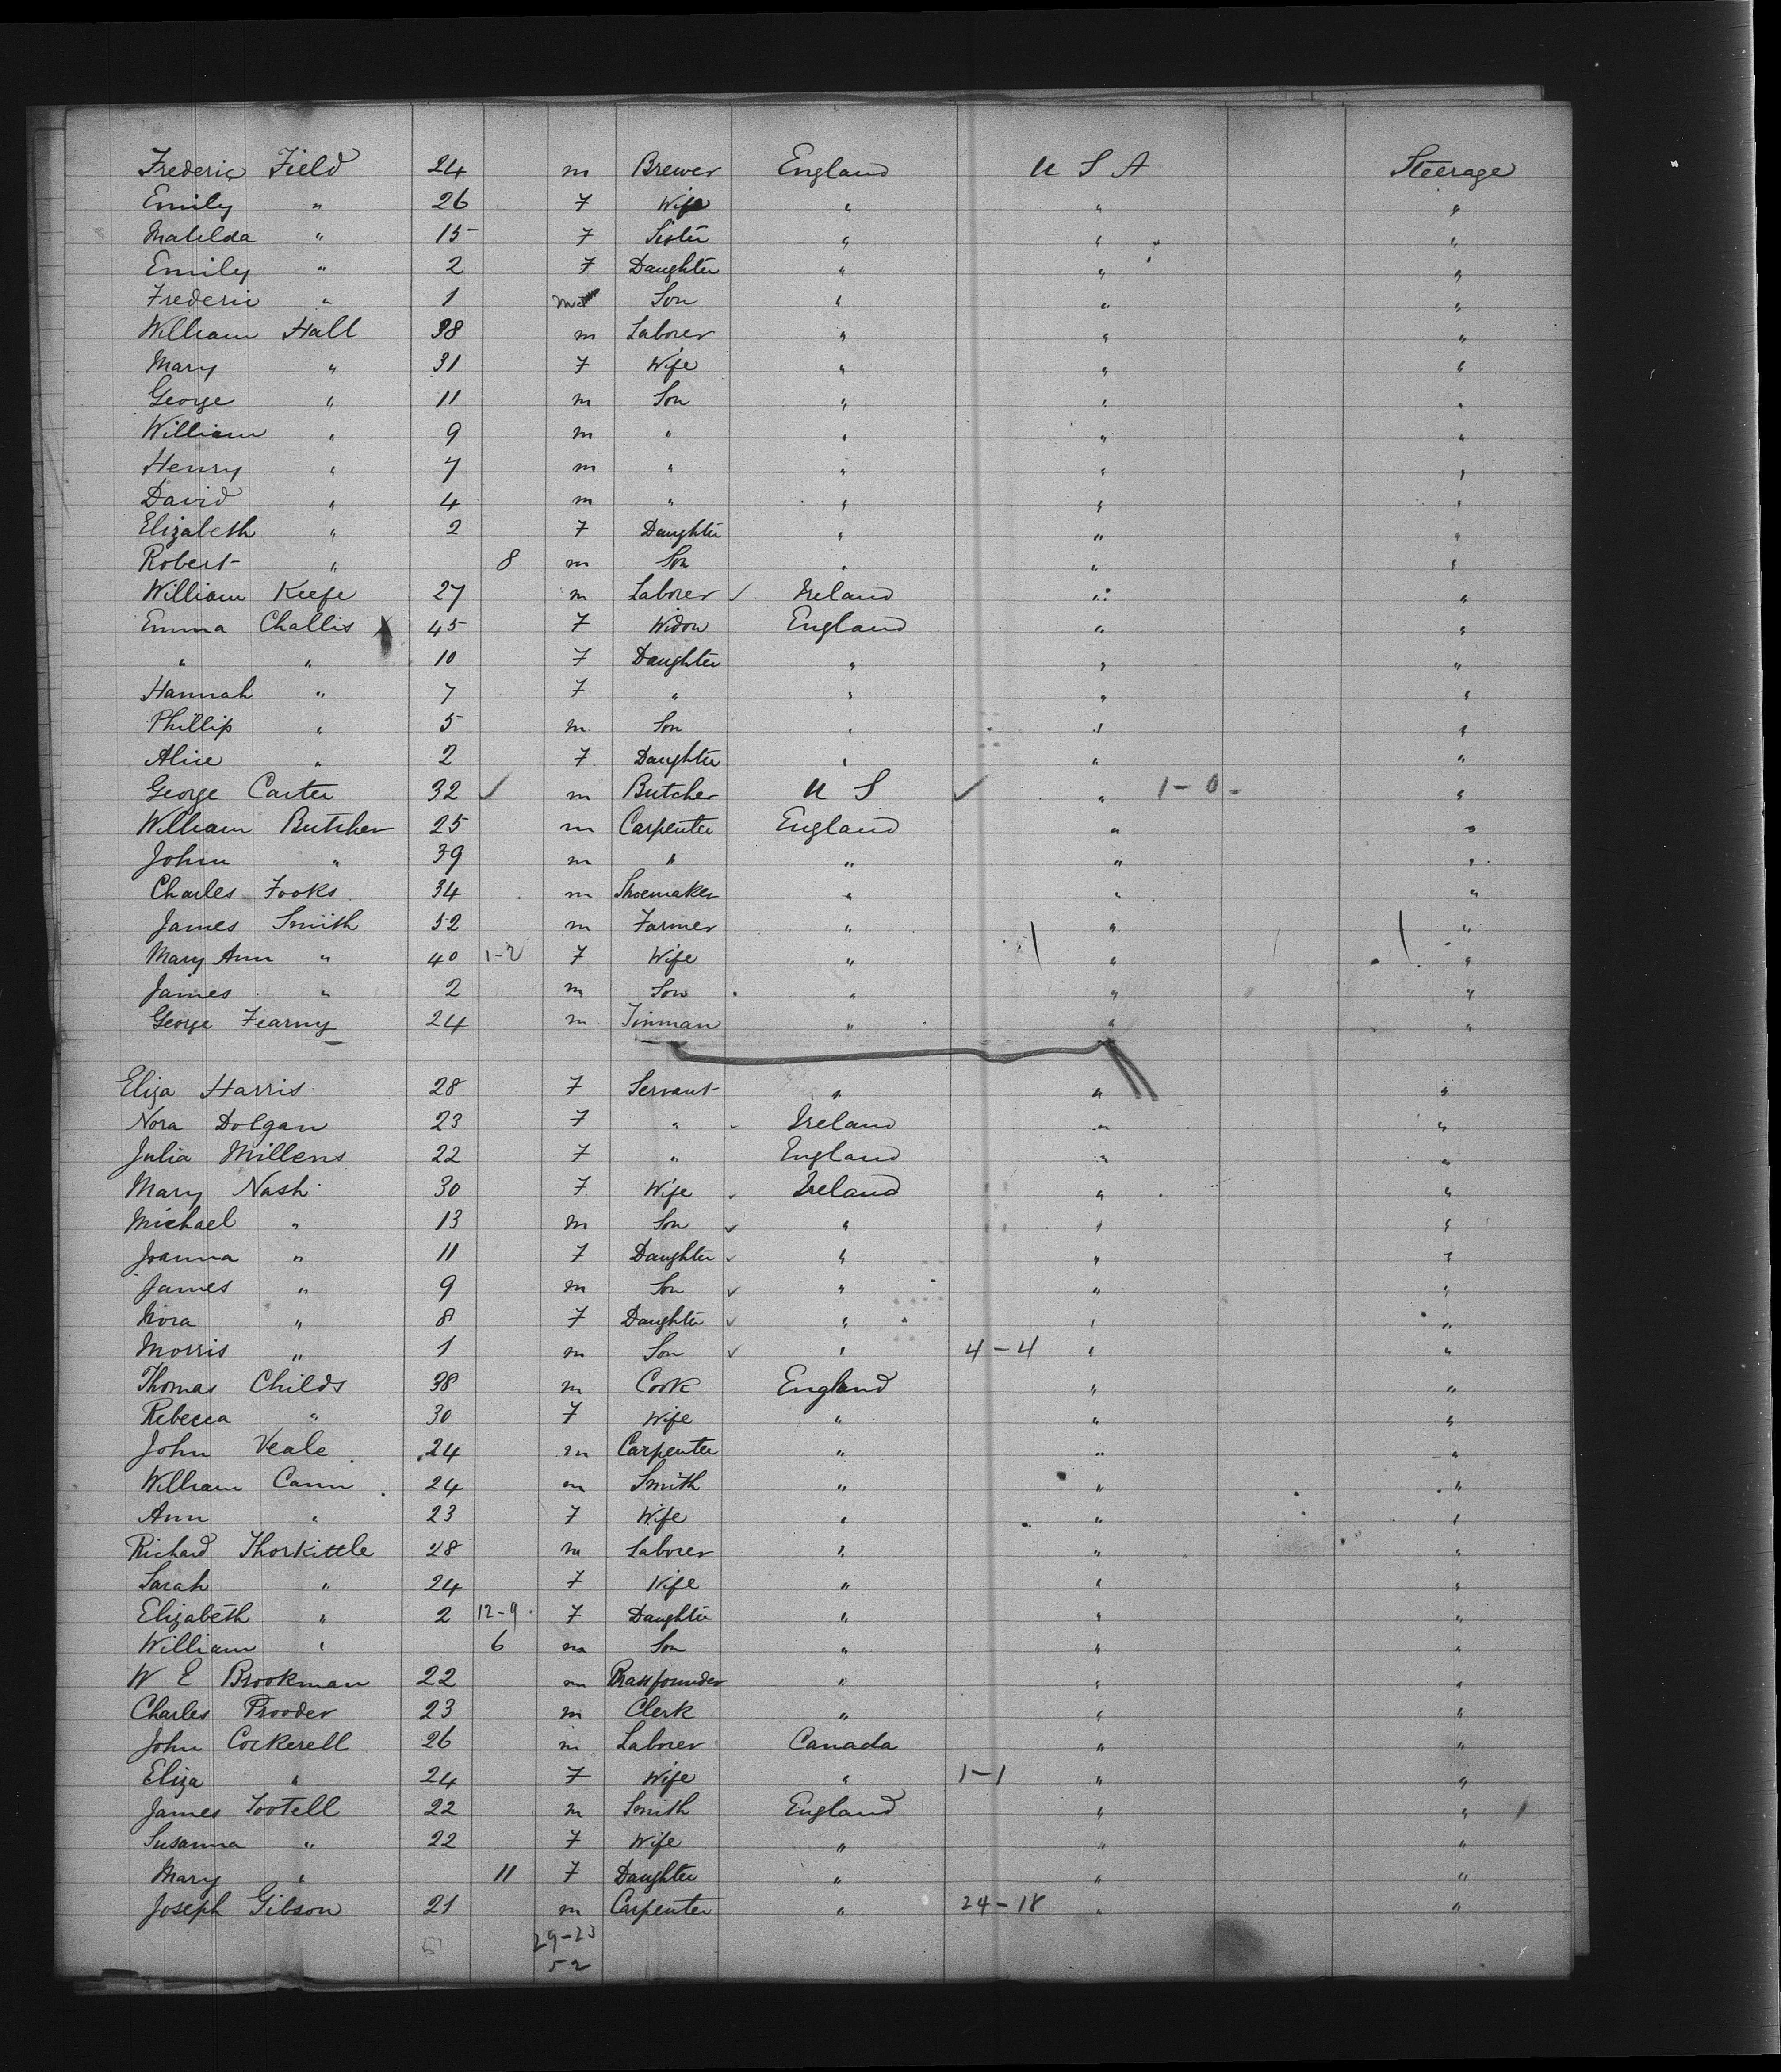 Frederic Field 24 m Brewer England U S A Steerage
Emily " 26 F Wife " " "
Matilda " 15 F Sister " " "
Emily " 2 F Daughter " " "
Frederic " 1 m Son " " "
William Hall 38 m Laborer " " "
Mary " 31 F Wife " " "
George " 11 m Son " " "
William " 9 m " " " "
Henry " 7 m " " " "
David " 4 m " " " "
Elizabeth " 2 F Daughter " " "
Robert " 8 m Son " " "
William Keefe 27 m Laborer ✓ Ireland " "
Emma Challis X 45 F Widow England " "
" " 10 F Daughter " " "
Hannah " 7 F " " " "
Phillip " 5 m Son " " "
Alice " 2 F Daughter " " "
George Carter 32 ✓ m Butcher U S ✓ " 1-0- "
William Butcher 25 m Carpenter England " "
John " 39 m " " " "
Charles Fooks 34 m Shoemaker " " "
James Smith 52 m Farmer " " "
Mary Ann " 40 1-2 F Wife " " "
James " 2 m Son " " "
George 24 m Tinman " " "
Eliza Harris 28 F Servant " " "
Nora Dolgan 23 F " Ireland " "
Julia Millens 22 F " England " "
Mary Nash 30 F Wife Ireland " "
Michael " 13 m Son ✓ " " "
Joanna " 11 F Daughter ✓ " " "
James " 9 m Son ✓ " " "
Nora " 8 F Daughter ✓ " " "
Morris " 1 m Son ✓ " 4-4 " "
Thomas Childs 38 m Cook England " "
Rebecca " 30 F Wife " " "
John Veale 24 m Carpenter " " "
William Cann 24 m Smith " " "
Ann " 23 F Wife " " "
Richard Thorkittle 28 m Laborer " " "
Sarah " 24 F Wife " " "
Elizabeth " 2 12-9 F Daughter " " "
William " 6 m Son " " "
W E Brookman 22 m Brassfounder " " "
Charles Prooder 23 m Clerk " " "
John Cockerell 26 m Laborer Canada " "
Eliza " 24 F Wife " 1-1 " "
James Tootell 22 m Smith England " "
Susanna " 22 F Wife " " "
Mary " 11 F Daughter " " "
Joseph Gibson 21 m Carpenter " 24-18 " "
29-23
52